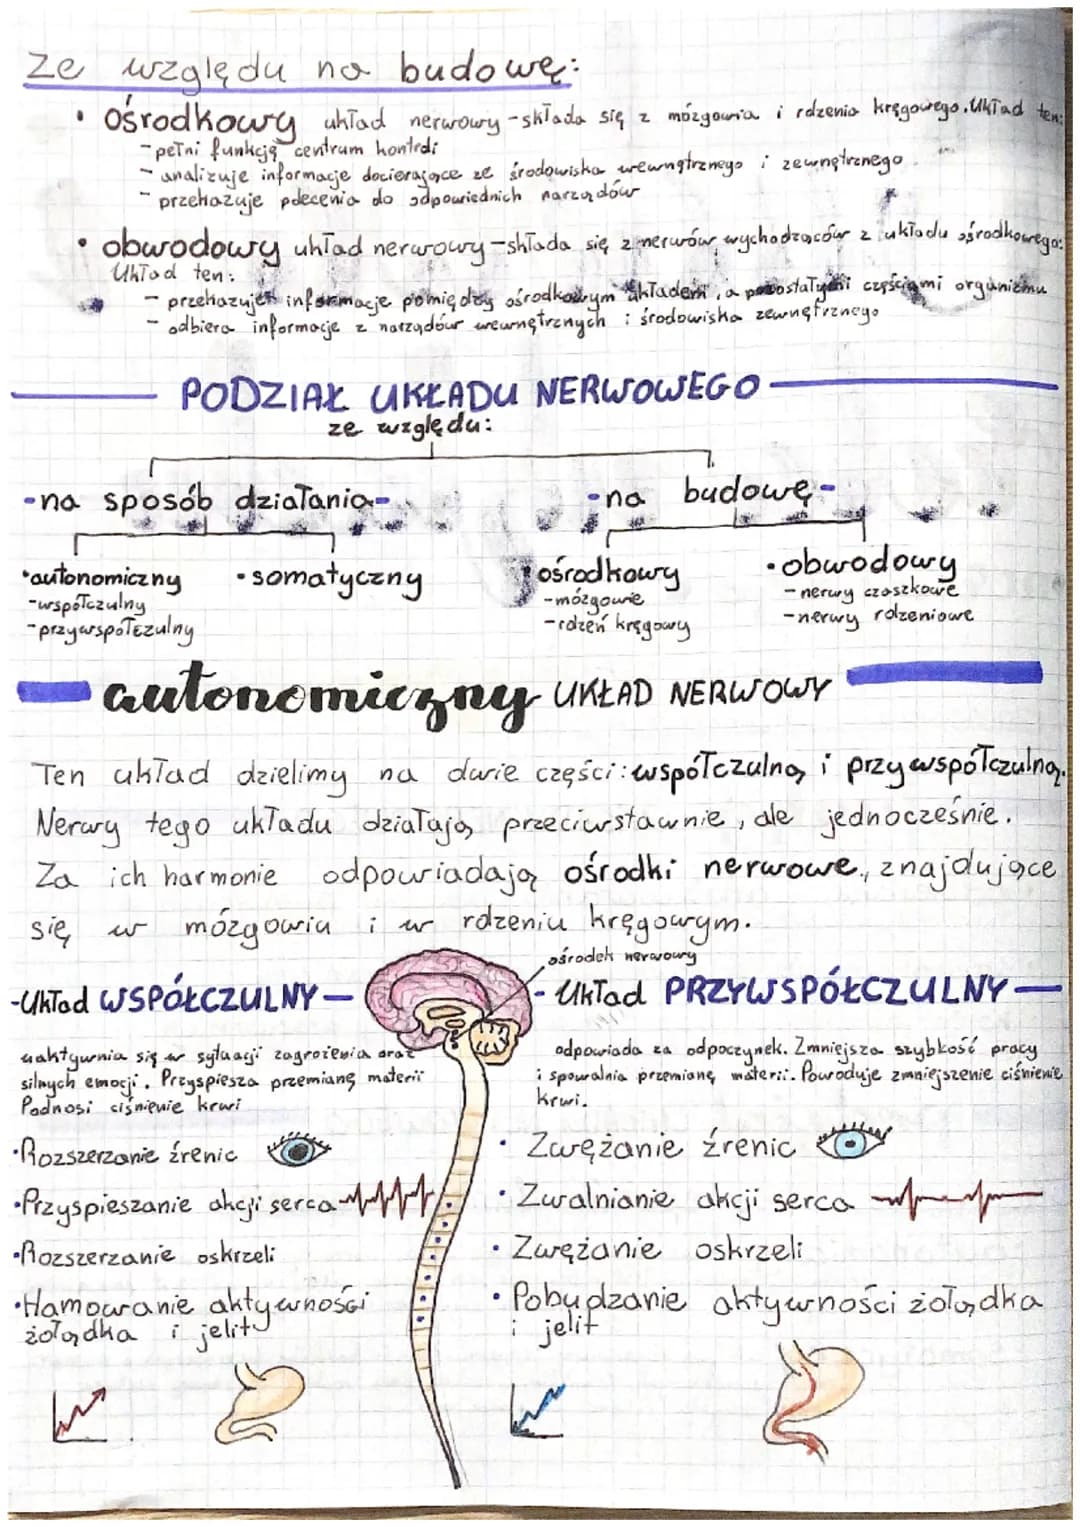 Ze względu na budowę:
• Ośrodkowy układ nerwowy - składa się z mózgowia i rdzenia kręgowego. Układ ten:
- pełni funkcję centrum kontroli
- analizuje informacje docierające ze środowiska wewnętrznego i zewnętrznego
- przekazuje polecenia do odpowiednich narządów
• obwodowy układ nerwowy - składa się z nerwów wychodzących z układu ośrodkowego:
Układ ten:
- przekazuje informacje pomiędzy ośrodkowym układem, a pozostałymi częściami organizmu
- odbiera informacje z narządów wewnętrznych i środowiska zewnętrznego
PODZIAŁ UKŁADU NERWOWEGO
ze względu:
- na sposób działania -
- na budowę -
• autonomiczny
- współczulny
- przywspółczulny
• somatyczny
• ośrodkowy
- mózgowie
- rdzeń kręgowy
• obwodowy
- nerwy czaszkowe
- nerwy rdzeniowe
autonomiczny UKŁAD NERWOWY
Ten układ dzielimy na dwie części: współczulną i przywspółczulną.
Nerwy tego układu działają przeciwstawnie, ale jednocześnie.
Za ich harmonie odpowiadają ośrodki nerwowe, znajdujące
się w mózgowiu i w rdzeniu kręgowym.
ośrodek nerwowy
- Układ WSPÓŁCZULNY -
uaktywnia się w sytuacji zagrożenia oraz
silnych emocji. Przyspiesza przemianę materii
Podnosi ciśnienie krwi
• Rozszerzanie źrenic
• Przyspieszanie akcji serca
• Rozszerzanie oskrzeli
• Hamowanie aktywności
żołądka i jelit
- Układ PRZYWSPÓŁCZULNY -
odpowiada za odpoczynek. Zmniejsza szybkość pracy
i spowalnia przemianę materii. Powoduje zmniejszenie ciśnienie
krwi.
• Zwężanie źrenic
• Zwalnianie akcji serca
• Zwężanie oskrzeli
• Pobudzanie aktywności żołądka
i jelit